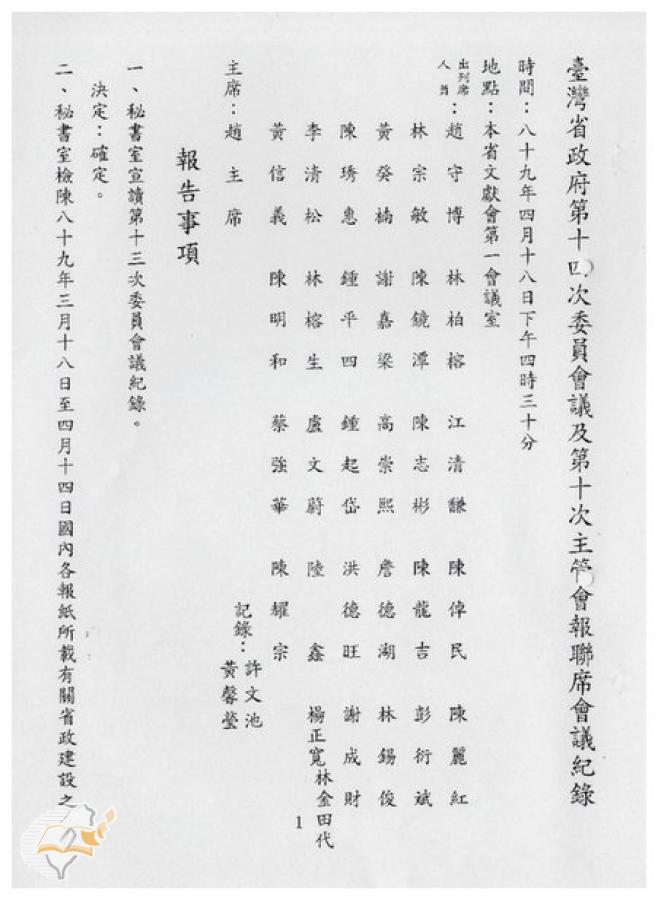 臺灣省政府第十四次委員會議及第十次主管會報聯席會議紀錄
時間：八十九年四月十八日下午四時三十分
地點：本省文獻會第一會議室
出列席人員：趙守博 林柏榕 江清馦 陳倬民 陳麗紅
林宗敏 陳鏡潭 陳志彬 陳龍吉 彭衍斌
黃癸楠 謝嘉梁 高崇熙 詹德湖 林錫俊
陳琇惠 鍾平四 鍾起岱 洪德旺 謝成財
李清松 林榕生 盧文蔚 陸鑫 楊正寬林金田代
黃信義 陳明和 蔡強華 陳耀宗
主席：趙主席
記錄：許文池
黃馨瑩
報告事項
一、秘書室宣讀第十三次委員會議紀錄。
決定：確定。
二、秘書室檢陳八十九年三月十八日至四月十四日國內各報紙所載有關省政建設之
1